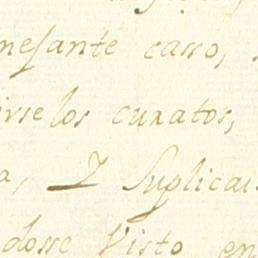 nesante casso,
irse los curatos,
a, Y Suplicau
dosse Visto en